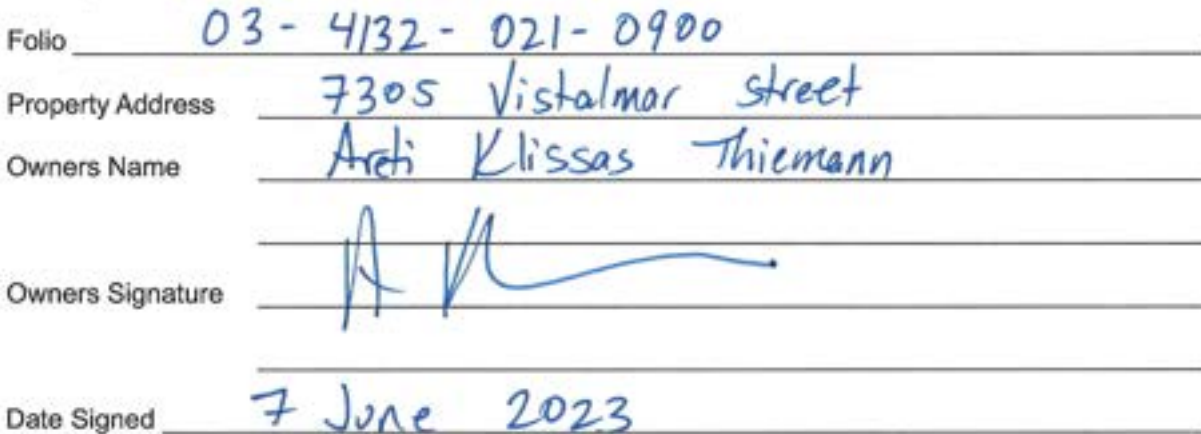 Folio 03-4132-021-0900
Property Address 7305 Vistalmar Street
Owners Name Areti Klissas Thiemann
Owners Signature
Date Signed 7 June 2023